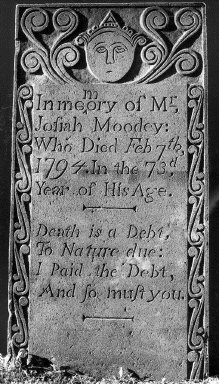 In memory of Mr,
Josiah Moodey:
Who Died Feb 7th,
1794. In the 73,d
Year of His Age.
Death is a Debt,
To Nature due:
I Paid the Debt,
And so must you.